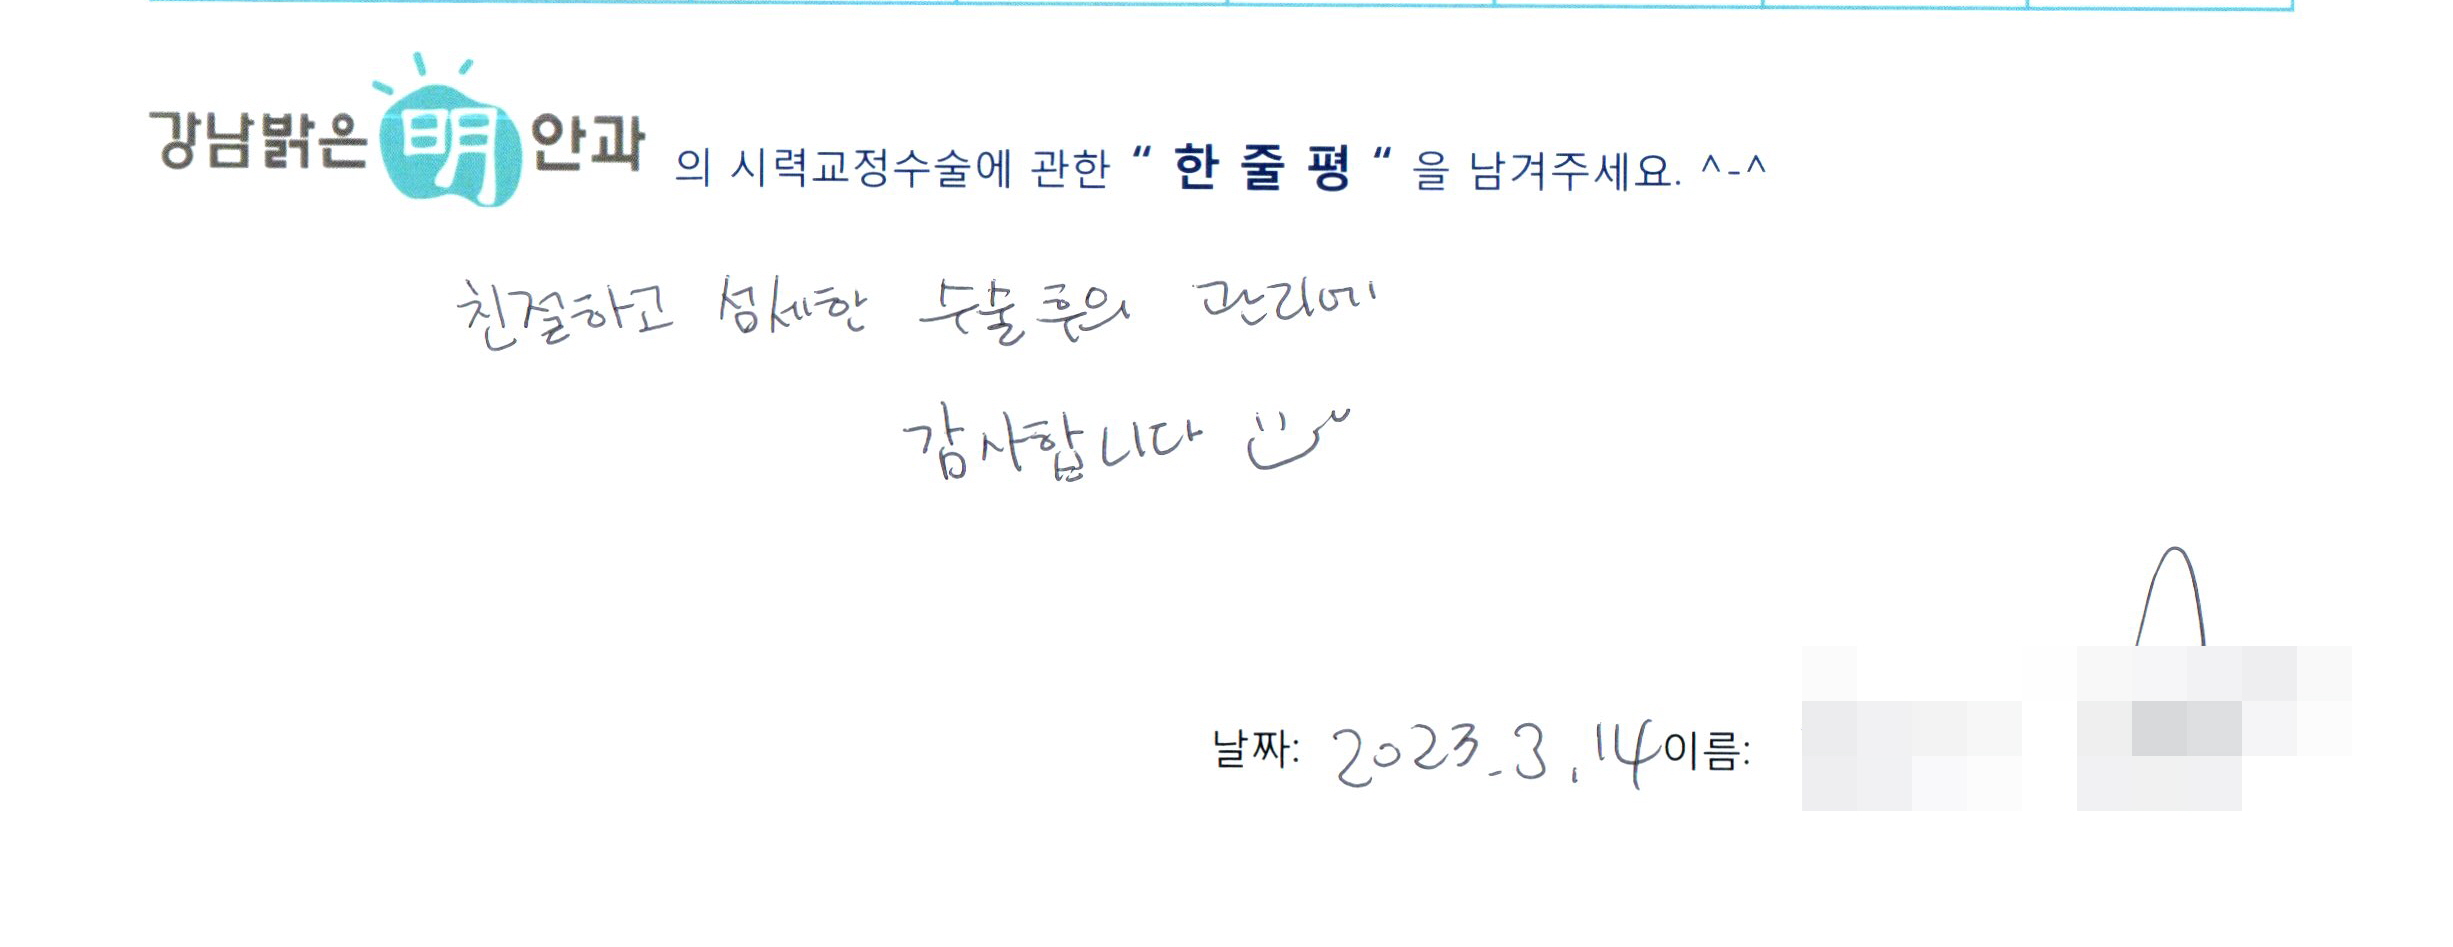 강남밝은明안과 의 시력교정수술에 관한 “ 한 줄 평 “ 을 남겨주세요. ^-^
친절하고 섬세한 수술후의 관리에
감사합니다
날짜: 2023.3.14 이름: